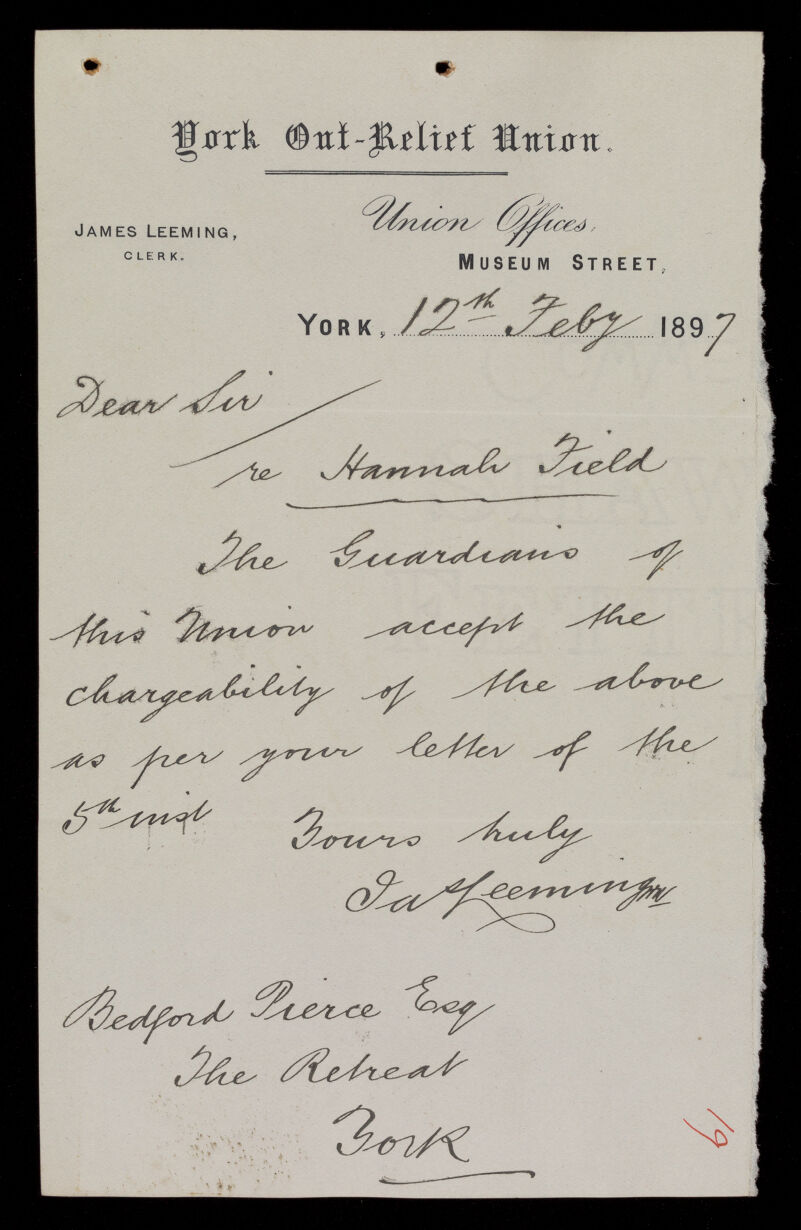 York Out-Relief Union.
JAMES LEEMING,
CLERK.
Union Offices,
MUSEUM STREET,
YORK, 12th Feby 1897
Dear Sir
re Hannah Field
The Guardians of
this Union accept the
chargeability of the above
as per your letter of the
5th inst
Yours truly
Jas Leeming
Bedford Pierce Esq
The Retreat
York
19